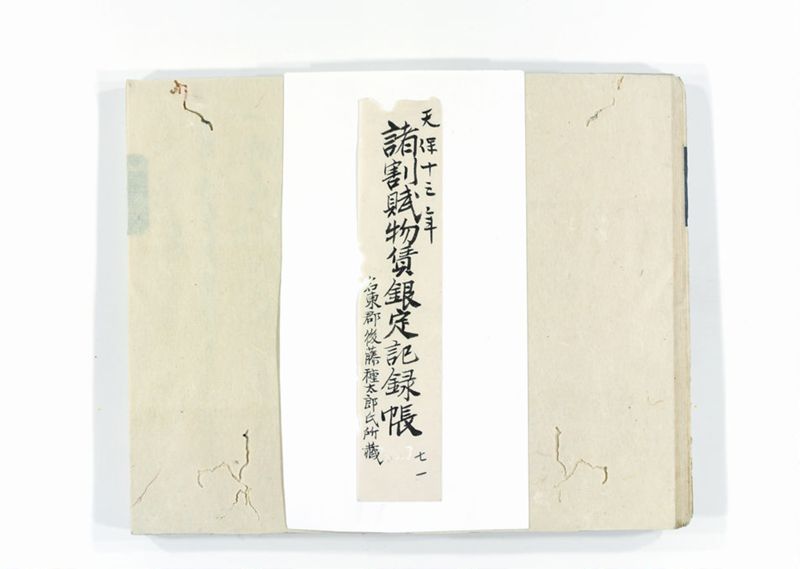 天保十三年
諸割賦物賃銀定記録帳
名東郡後藤種太郎氏所蔵
七一